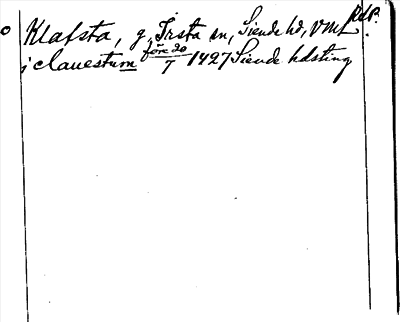 Klafsta, g, Irsta sn, Siende hd, Vml
j clauestum före 20/7 1427 Siende hdsting